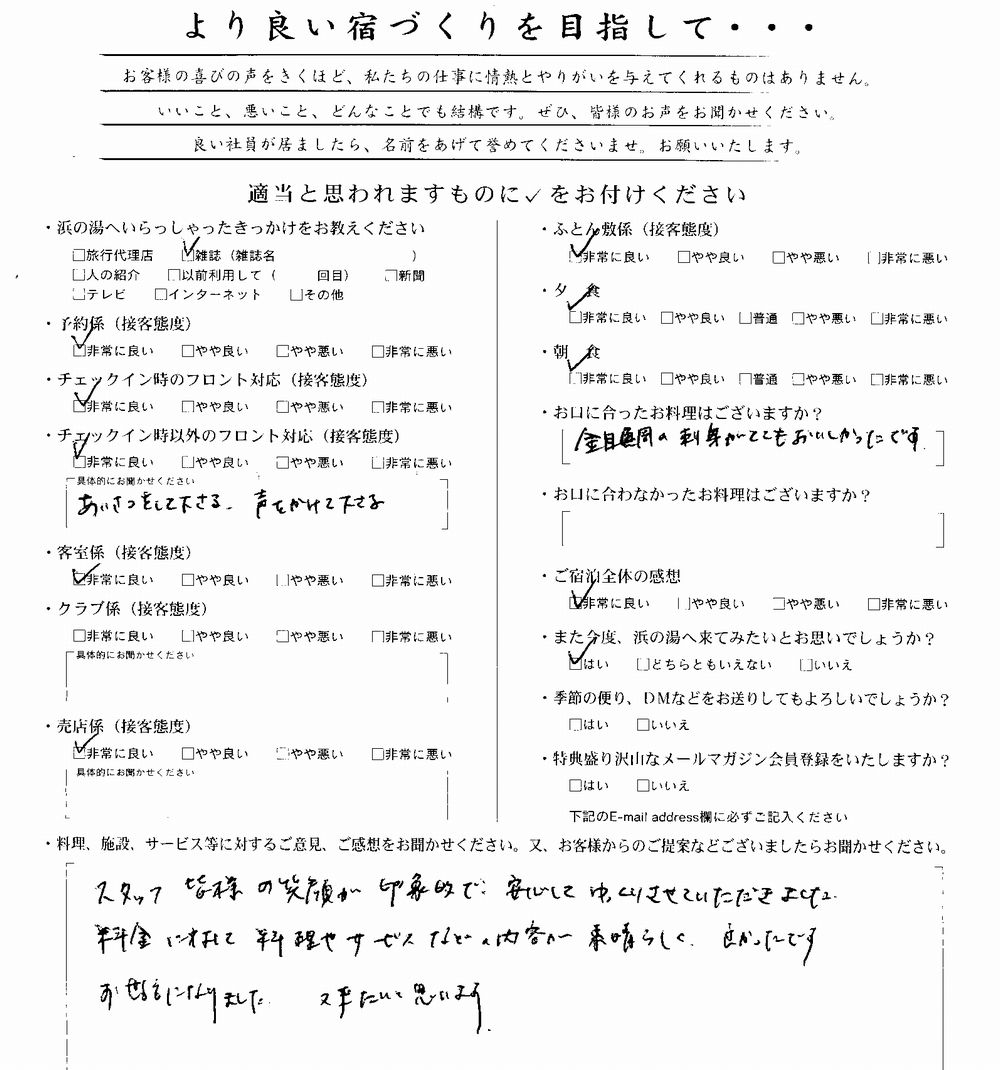 より良い宿づくりを目指して・・・
お客様の喜びの声をきくほど、私たちの仕事に情熱とやりがいを与えてくれるものはありません。
いいこと、悪いこと、どんなことでも結構です。ぜひ、皆様のお声をお聞かせください。
良い社員が居ましたら、名前をあげて誉めてくださいませ。お願いいたします。
適当と思われますものに✓をお付けください
・浜の湯へいらっしゃったきっかけをお教えください
□旅行代理店 ☑雑誌（雑誌名 ）
□人の紹介 □以前利用して（ 回目） □新聞
□テレビ □インターネット □その他
・予約係（接客態度）
☑非常に良い □やや良い □やや悪い □非常に悪い
・チェックイン時のフロント対応（接客態度）
☑非常に良い □やや良い □やや悪い □非常に悪い
・チェックイン時以外のフロント対応（接客態度）
☑非常に良い □やや良い □やや悪い □非常に悪い
具体的にお聞かせください
あいさつをして下さる、声をかけて下さる
・客室係（接客態度）
☑非常に良い □やや良い □やや悪い □非常に悪い
・クラブ係（接客態度）
□非常に良い □やや良い □やや悪い □非常に悪い
具体的にお聞かせください
・売店係（接客態度）
☑非常に良い □やや良い □やや悪い □非常に悪い
具体的にお聞かせください
・ふとん敷係（接客態度）
☑非常に良い □やや良い □やや悪い □非常に悪い
・夕 食
☑非常に良い □やや良い □普通 □やや悪い □非常に悪い
・朝 食
☑非常に良い □やや良い □普通 □やや悪い □非常に悪い
・お口に合ったお料理はございますか？
金目鯛の刺身がとてもおいしかったです
・お口に合わなかったお料理はございますか？
・ご宿泊全体の感想
☑非常に良い □やや良い □やや悪い □非常に悪い
・また今度、浜の湯へ来てみたいとお思いでしょうか？
☑はい □どちらともいえない □いいえ
・季節の便り、DMなどをお送りしてもよろしいでしょうか？
□はい □いいえ
・特典盛り沢山なメールマガジン会員登録をいたしますか？
□はい □いいえ
下記のE-mail address欄に必ずご記入ください
・料理、施設、サービス等に対するご意見、ご感想をお聞かせください。又、お客様からのご提案などございましたらお聞かせください。
スタッフ皆様の笑顔が印象的で、安心してゆっくりさせていただきました。
料金に対して料理やサービスなどの内容が素晴らしく、良かったです
お世話になりました。 又来たいと思います。